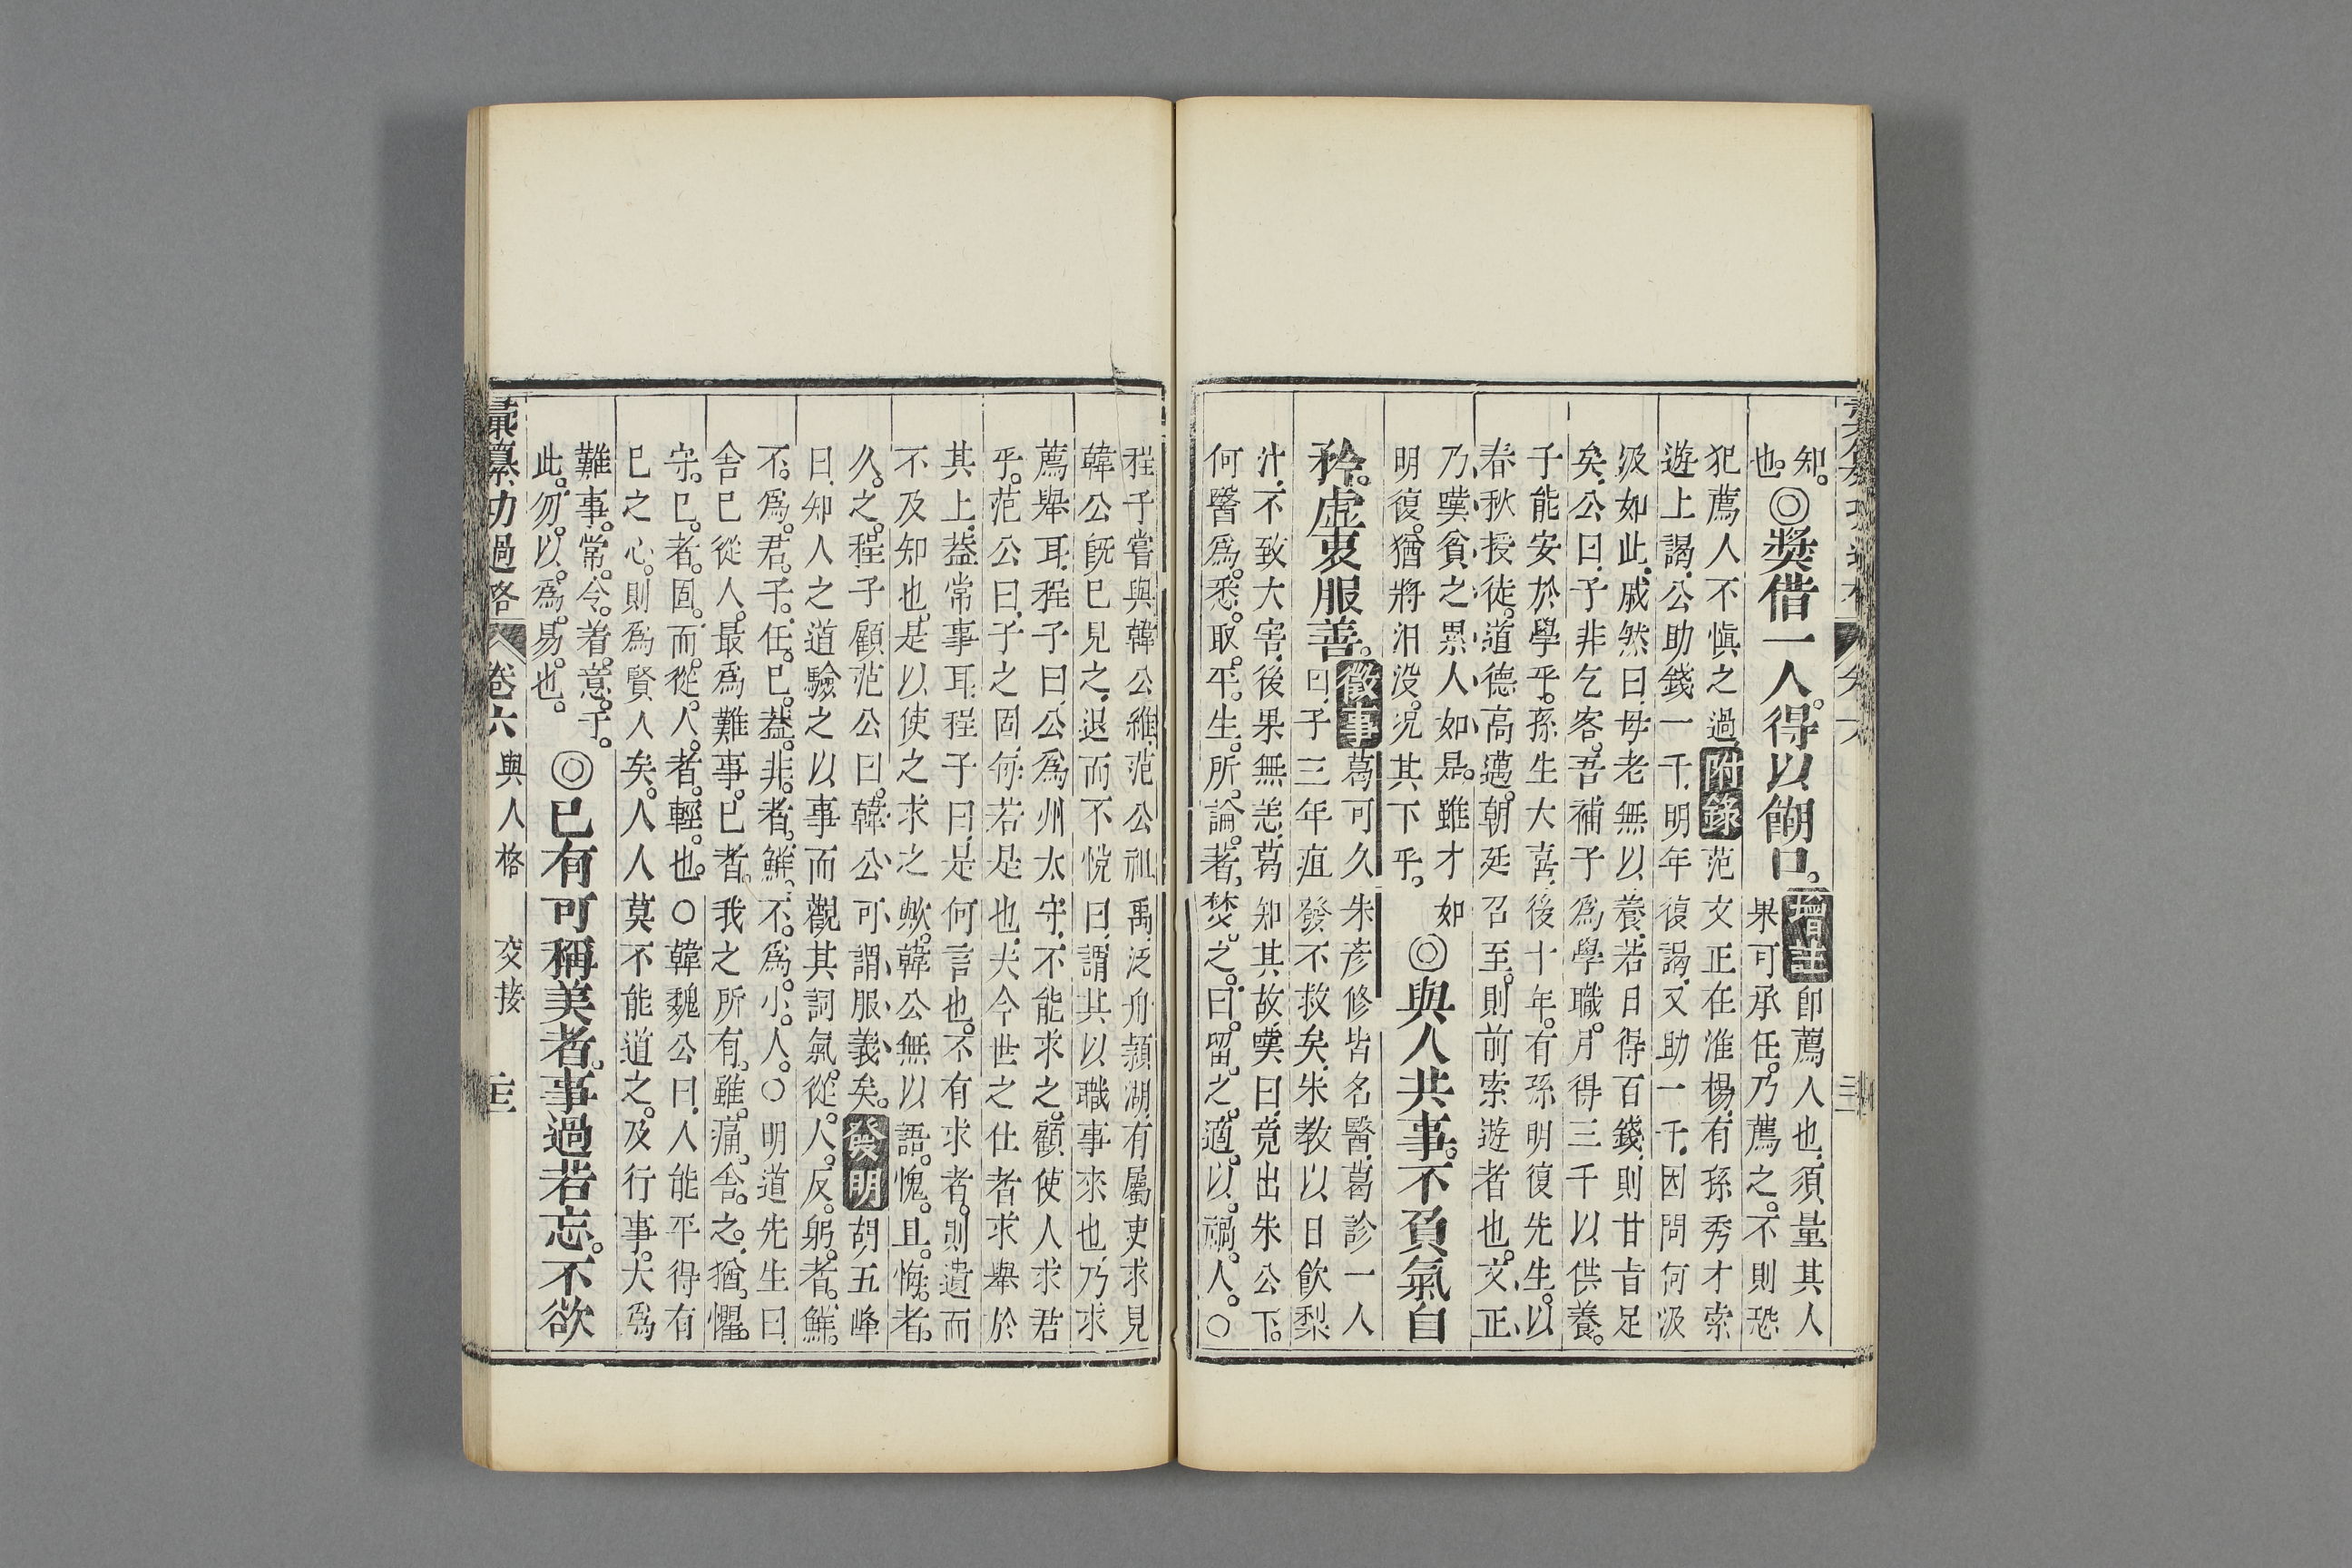 知。◎獎借一人。得以餬口。增註卽薦人也。須量其人
也。果可承任。乃薦之。不則恐
犯薦人不愼之過。附錄范文正在淮楊。有孫秀才索
遊上謁。公助錢一千。明年復謁。又助一千。因問何汲
汲如此。戚然曰。母老無以養。若日得百錢。則甘旨足
矣。公曰。子非乞客。吾補子爲學職。月得三千以供養。
子能安於學乎。孫生大喜。後十年。有孫明復先生。以
春秋授徒。道德高邁。朝廷召至。則前索遊者也。文正
乃嘆貧之累人如是。雖才如
明復。猶將汨没。況其下乎。◎與人共事。不負氣自
矜。虛衷服善。徵事葛可久朱彥修皆名醫。葛診一人
曰。子三年疽發不救矣。朱教以日飲梨
汁。不致大害。後果無恙。葛知其故。嘆曰。竟出朱公下。
何醫爲。悉取平生所論著。焚之。曰。留之。適以禍人。○
程子嘗與韓公維。范公祖禹。泛舟潁湖。有屬吏求見
韓公。旣已見之。退而不悅曰。謂其以職事來也。乃求
薦舉耳。程子曰。公爲州太守。不能求之。顧使人求君
乎。范公曰。子之固每若是也。夫今世之仕者。求舉於
其上。葢常事耳。程子曰。是何言也。不有求者。則遺而
不及知也。是以使之求之歟。韓公無以語。愧且悔者
久之。程子顧范公曰。韓公可謂服義矣。發明胡五峰
曰。知人之道。驗之以事。而觀其詞氣。從人反躬者。鮮
不爲君子。任已葢非者。鮮不爲小人。○明道先生曰。
舍已從人。最爲難事。已者。我之所有。雖痛舍之。猶懼
守已者固。而從人者輕也。○韓魏公曰。人能平得有
已之心。則爲賢人矣。人人莫不能道之。及行事。大爲
難事。常令着意于
此。勿以爲易也。◎已有可稱美者。事過若忘。不欲
彙纂功過格 卷六 與人格 交接